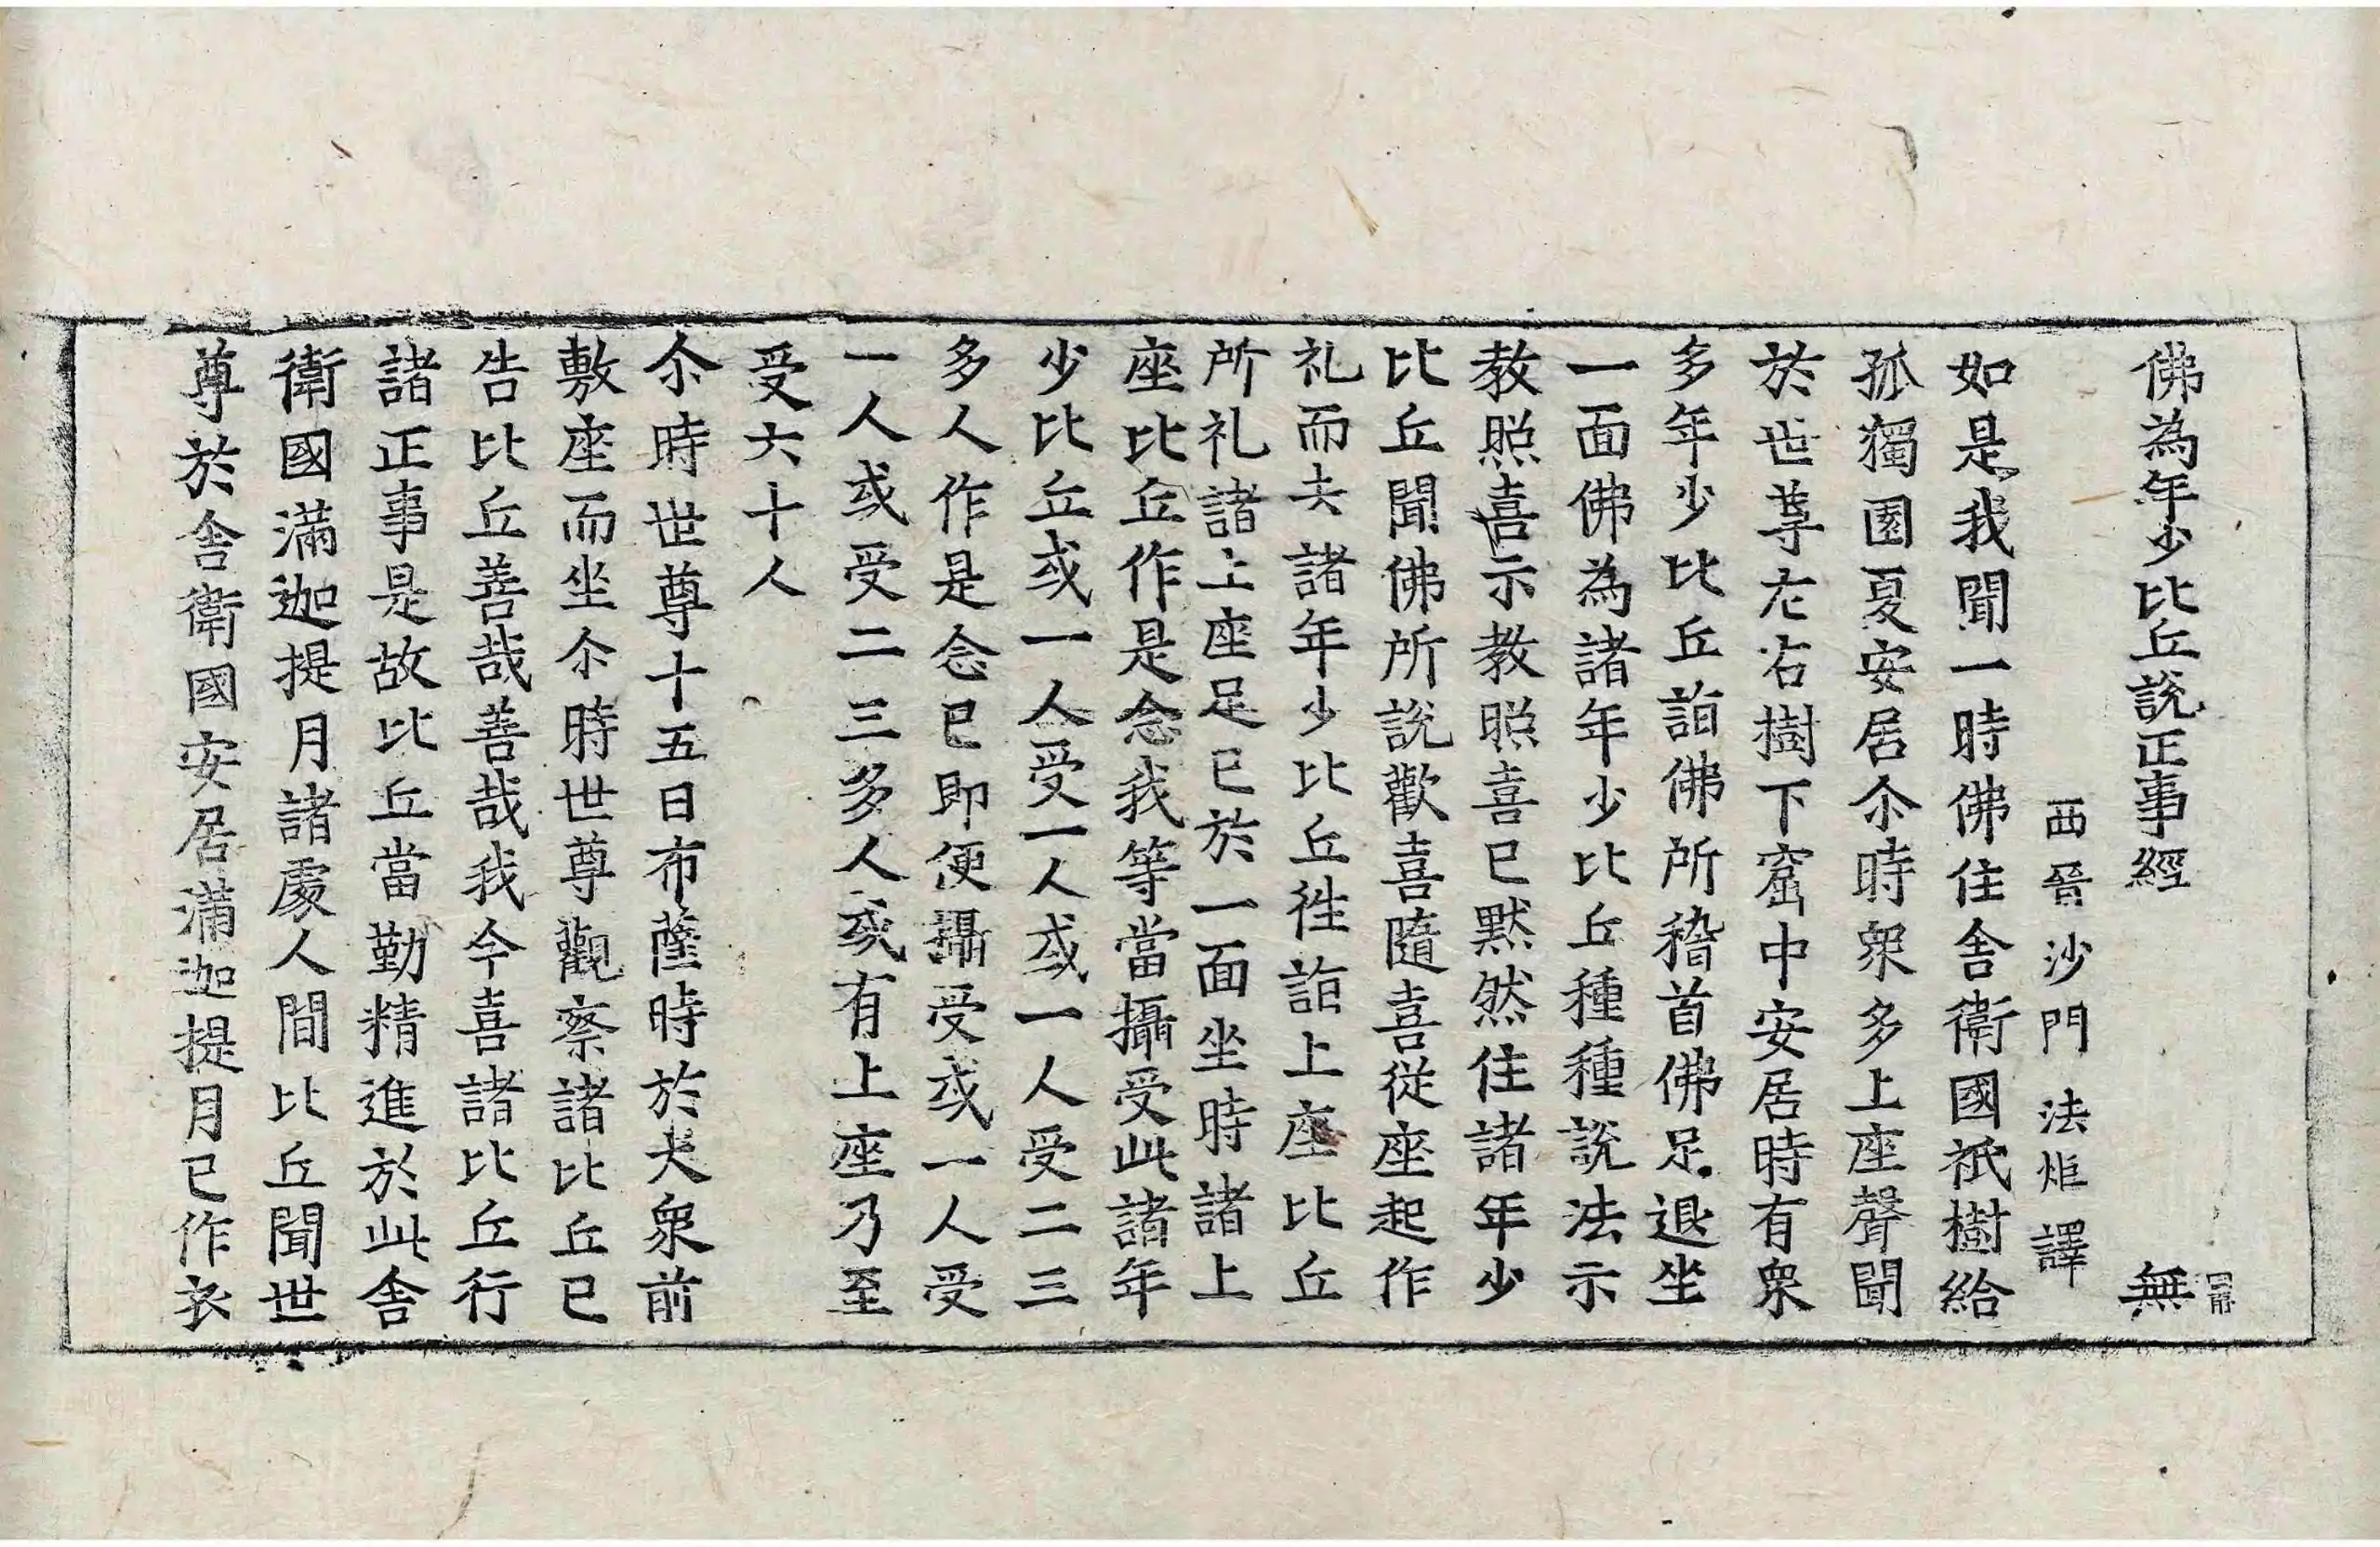 佛為年少比丘說正事經 無
西晉沙門法炬譯
如是我聞一時佛住舍衛國祇樹給
孤獨園夏安居尒時衆多上座聲聞
於世尊左右樹下窟中安居時有衆
多年少比丘詣佛所稽首佛足退坐
一面佛為諸年少比丘種種說法示
教照喜示教照喜已默然住諸年少
比丘聞佛所說歡喜隨喜從座起作
礼而去諸年少比丘往詣上座比丘
所礼諸上座足已於一面坐時諸上
座比丘作是念我等當攝受此諸年
少比丘或一人受一人或一人受二三
多人作是念已即便攝受或一人受
一人或受二三多人或有上座乃至
受六十人
尒時世尊十五日布薩時於大衆前
敷座而坐尒時世尊觀察諸比丘已
告比丘善哉善哉我今喜諸比丘行
諸正事是故比丘當勤精進於此舍
衛國滿迦提月諸處人間比丘聞世
尊於舍衛國安居滿迦提月已作衣